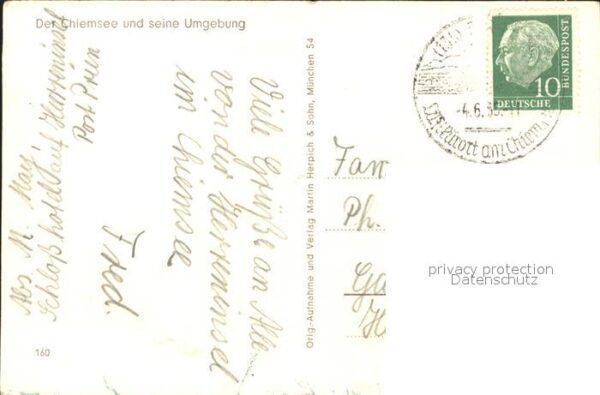 Der Chiemsee und seine Umgebung
Abs. M. May
Schloßhotel auf Herreninsel
Post Prien
Viele Grüße an Alle
von der Herreninsel
im Chiemsee
Fred.
160
Orig.-Aufnahme und Verlag Martin Herpich & Sohn, München 54
10
DEUTSCHE
BUNDESPOST
-4.6.
Luftkurort am Chiem
Fam
Ph.
Ga
H
privacy protection
Datenschutz